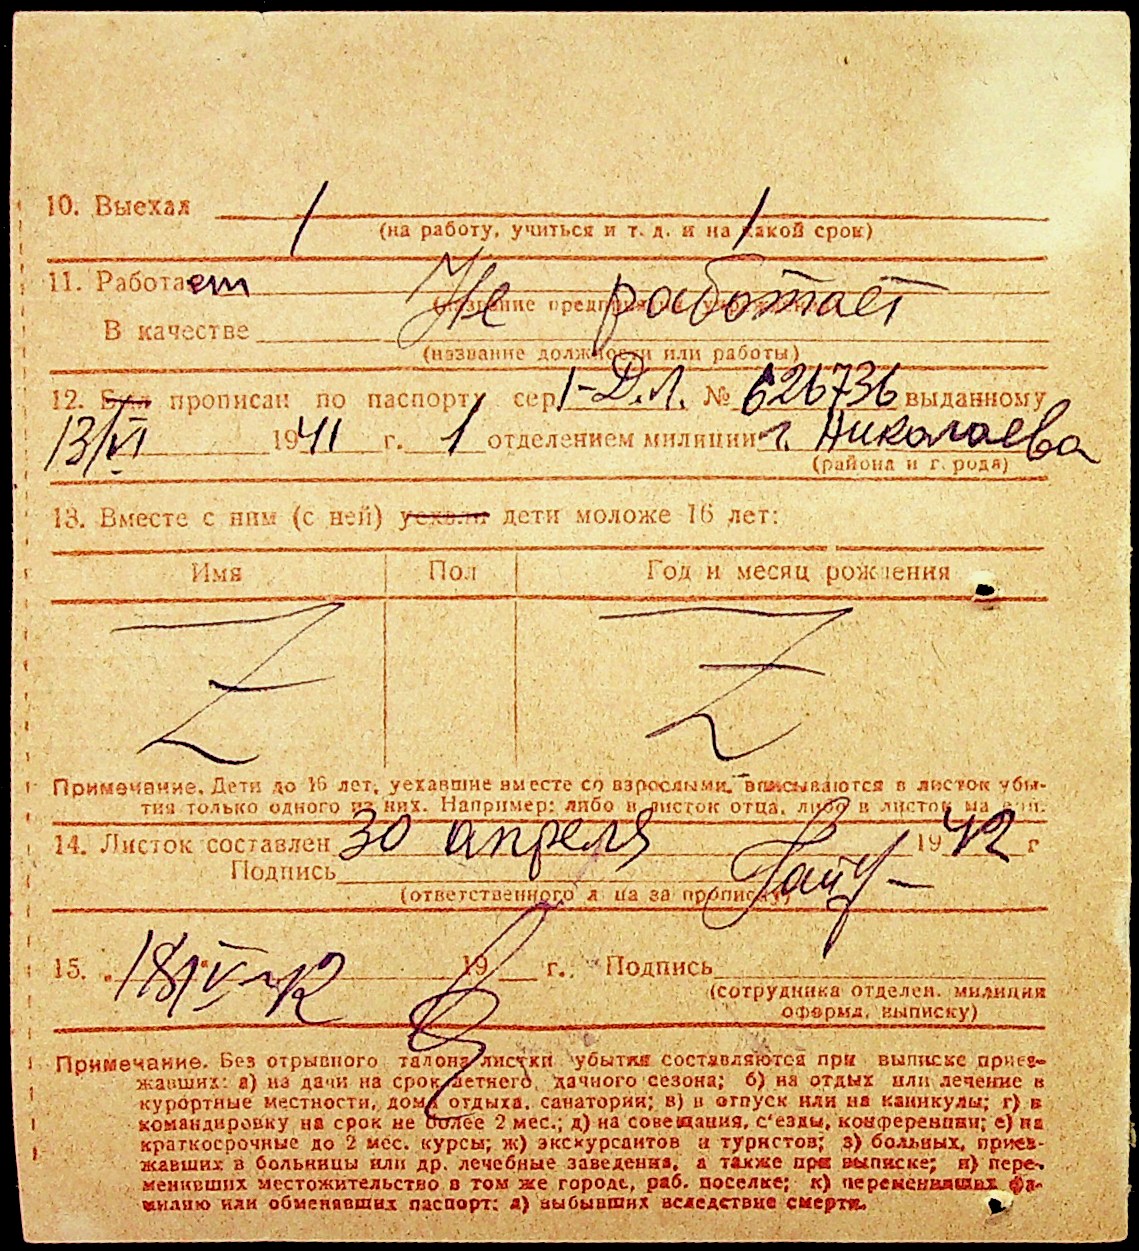 10. Выехал
(на работу, учиться и т. д. и на какой срок)
11. Работает Не работает
(название предприятия, учрежд
В качестве
(название должности или работы)
12. Был прописан по паспорту сер. I-Д.Л. № 626736 выданному
13/VI 1941 г. 1 отделением милиции г. Николаева
(района и города)
13. Вместе с ним (с ней) уехали дети моложе 16 лет:
Имя Пол Год и месяц рождения
Z Z
Примечание. Дети до 16 лет, уехавшие вместе со взрослыми, вписываются в листок убы-
тия только одного из них. Например: либо в листок отца, либо в листок матери.
14. Листок составлен 30 апреля 1942 г
Подпись
(ответственного лица за прописку)
15. „18/V-42 19 г. Подпись
(сотрудника отделен. милиции
оформл. выписку)
Примечание. Без отрывного талона листки убытия составляются при выписке приез-
жавших: а) на дачи на срок летнего, дачного сезона; б) на отдых или лечение в
курортные местности, дома отдыха, санатории; в) в отпуск или на каникулы; г) в
командировку на срок не более 2 мес.; д) на совещания, с'езды, конференции; е) на
краткосрочные до 2 мес. курсы; ж) экскурсантов и туристов; з) больных, приез-
жавших в больницы или др. лечебные заведения, а также при выписке; и) пере-
менивших местожительство в том же городе, раб. поселке; к) переменивших фа-
милию или обменявших паспорт; л) выбывших вследствие смерти.